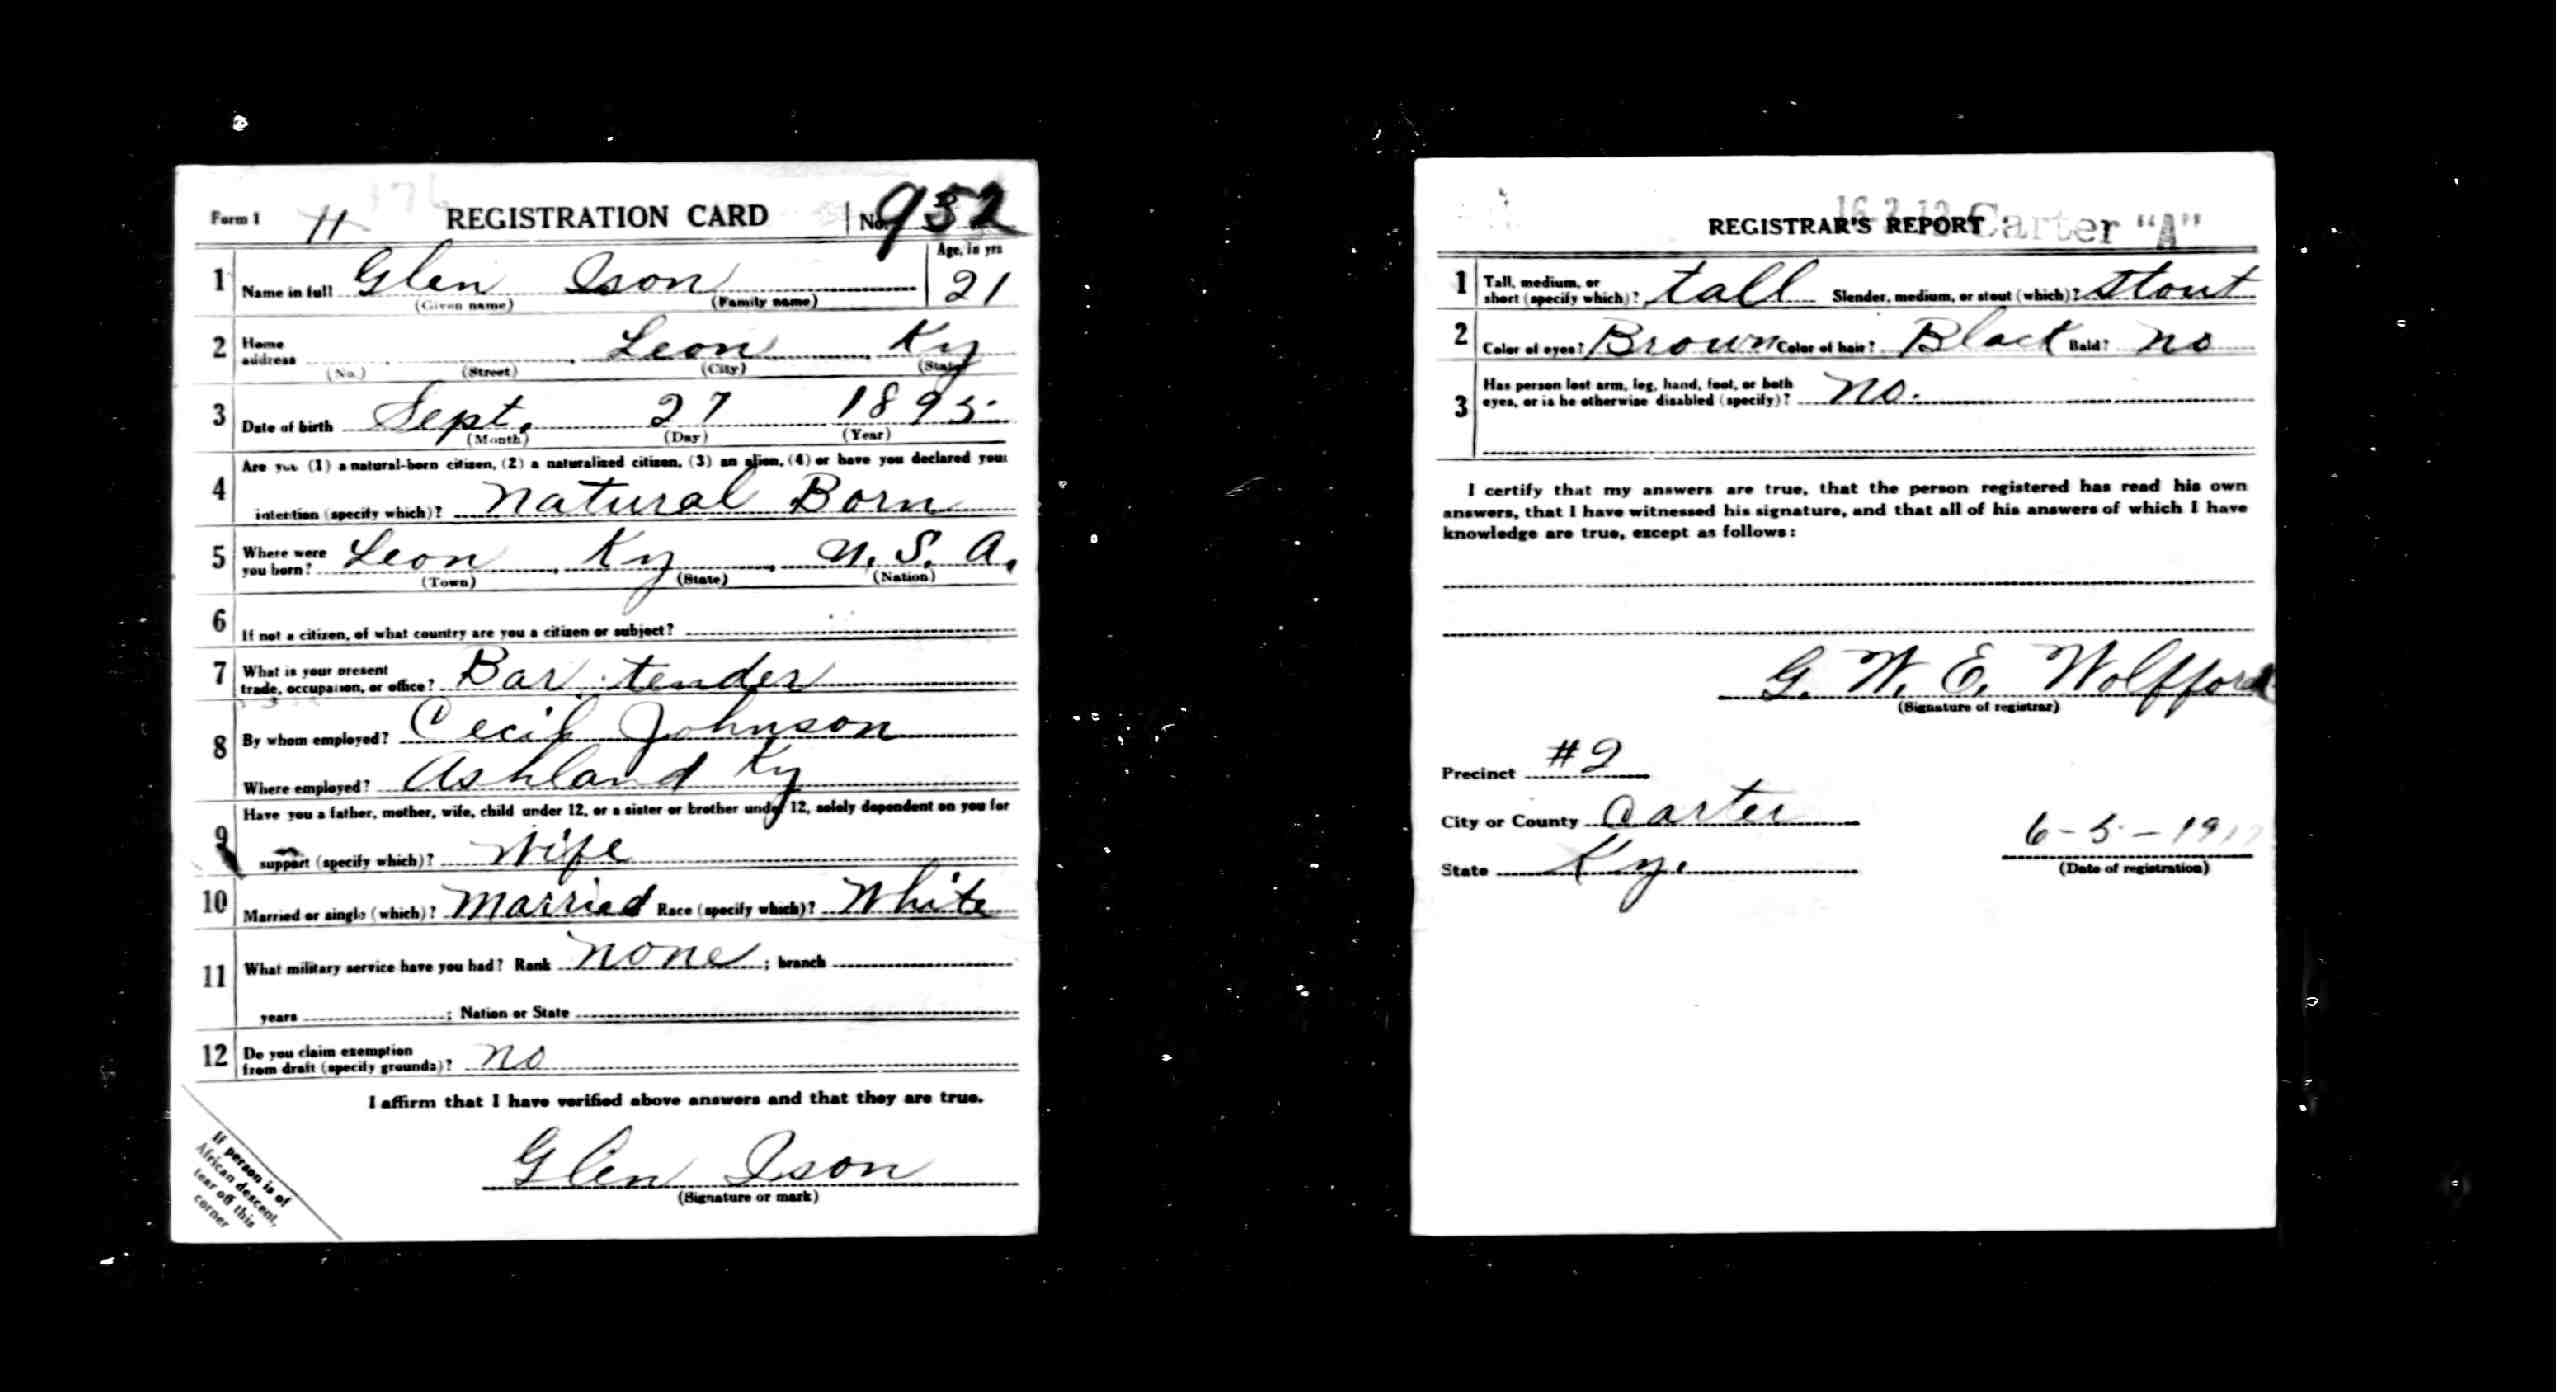 Form 1 11 REGISTRATION CARD No. 932
1 Name in full Glen Ison Age, in yrs 21
(Given name) (Family name)
2 Home address Leon Ky
(No.) (Street) (City) (State)
3 Date of birth Sept. 27 1895
(Month) (Day) (Year)
4 Are you (1) a natural-born citizen, (2) a naturalized citizen, (3) an alien, (4) or have you declared your
intention (specify which)? Natural Born
5 Where were you born? Leon Ky U.S.A.
(Town) (State) (Nation)
6 If not a citizen, of what country are you a citizen or subject?
7 What is your present trade, occupation, or office? Bar tender
8 By whom employed? Cecil Johnson
Where employed? Ashland Ky
9 Have you a father, mother, wife, child under 12, or a sister or brother under 12, solely dependent on you for
support (specify which)? Wife
10 Married or single (which)? Married Race (specify which)? White
11 What military service have you had? Rank none ; branch
years ; Nation or State
12 Do you claim exemption from draft (specify grounds)? no
I affirm that I have verified above answers and that they are true.
Glen Ison
(Signature or mark)
If person is of
African descent,
tear off this
corner
REGISTRAR'S REPORT Carter "A"
1 Tall, medium, or short (specify which)? tall Slender, medium, or stout (which)? Stout
2 Color of eyes? Brown Color of hair? Black Bald? no
3 Has person lost arm, leg, hand, foot, or both
eyes, or is he otherwise disabled (specify)? no.
I certify that my answers are true, that the person registered has read his own
answers, that I have witnessed his signature, and that all of his answers of which I have
knowledge are true, except as follows:
G. W. E. Wolfford
(Signature of registrar)
Precinct #2
City or County Carter
State Ky. 6-5-1917
(Date of registration)